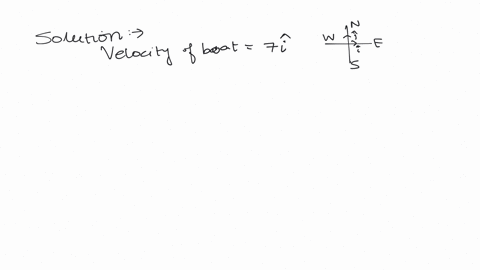 Solution :→
Velocity of boat = 7î
N
ĵ
W E
î
S